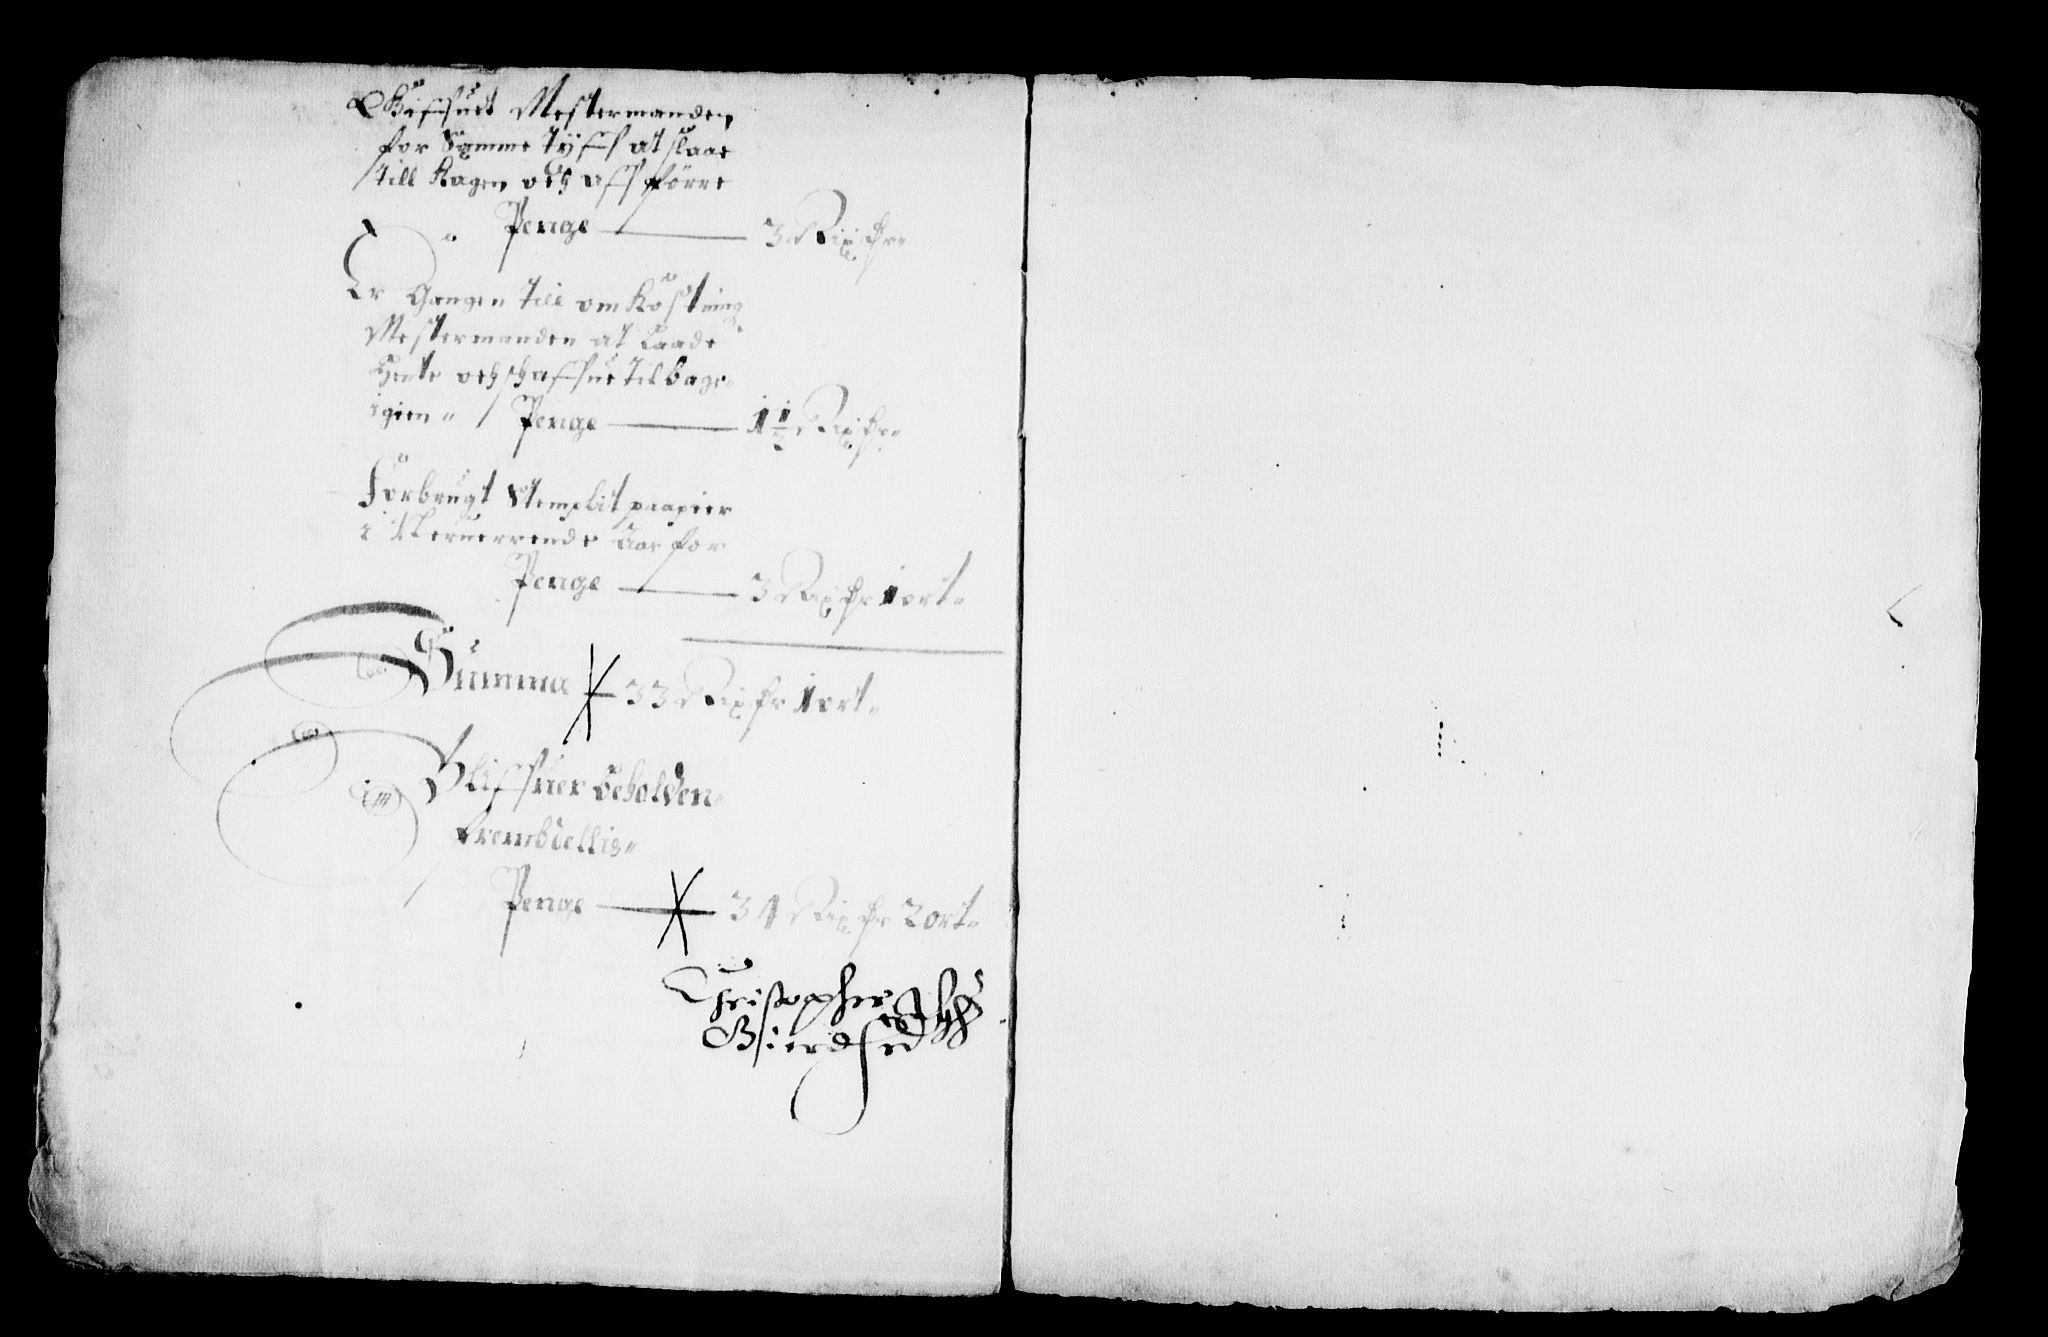 Giffuet Mestermanden
for Samme Tyff at slaae
till Kagen och aff före
Penge — 3 Rix dr
Er Gangen till omkostning
Mestermanden at Laade
Hente och schaffue tilbage
igien Penge — 1 1/2 Rix dr
Forbrugt Stemplit paapier
i Neruerrende Aar for
Penge — 3 Rix dr 1 ort
Summa 33 Rix dr 1 ort
Bliffuer beholden
Penge — 34 Rix dr 2 ort
Christopher